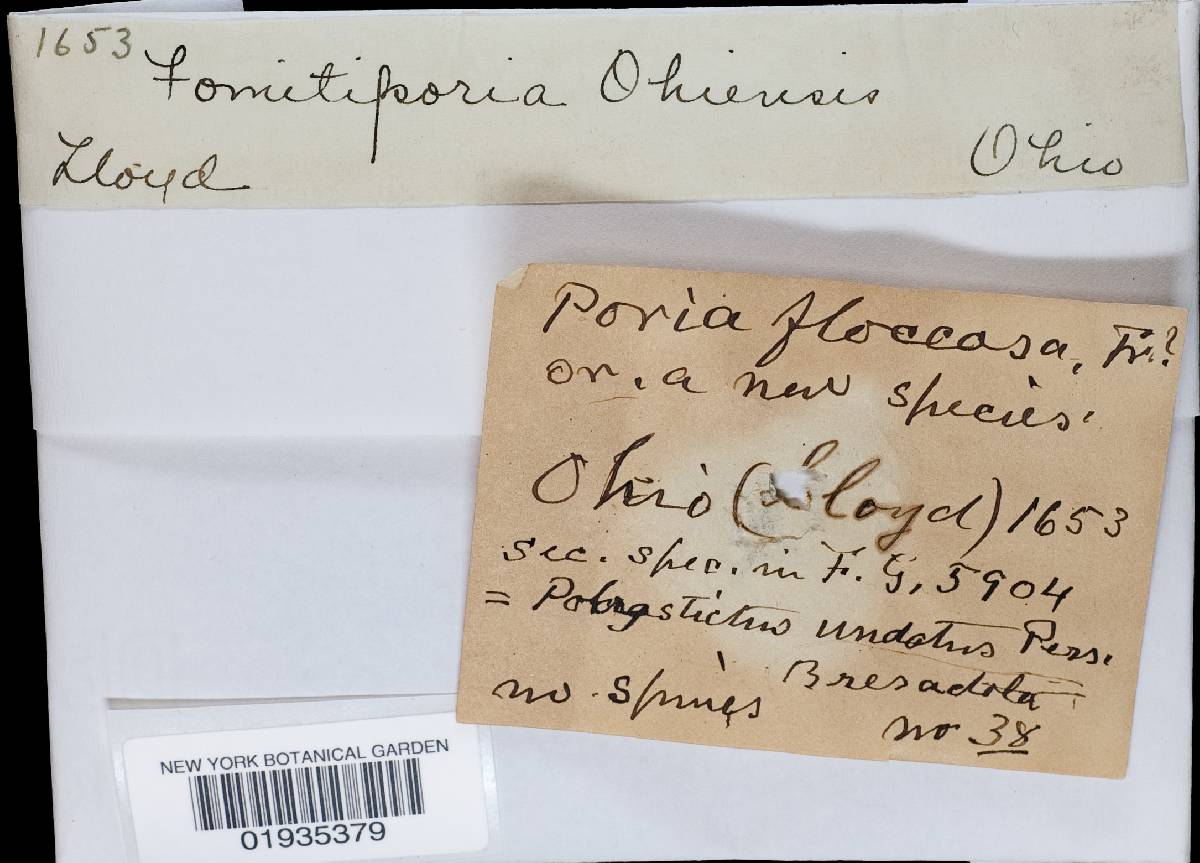 1653 Fomitiporia Ohiensis
Lloyd Ohio
Poria floccosa, Fr.?
or. a new species.
Ohio (Lloyd) 1653
sec. spec. in F. G, 5904
= Polystictus undatus Pers.
Bresadola
no spines no 38
NEW YORK BOTANICAL GARDEN
01935379